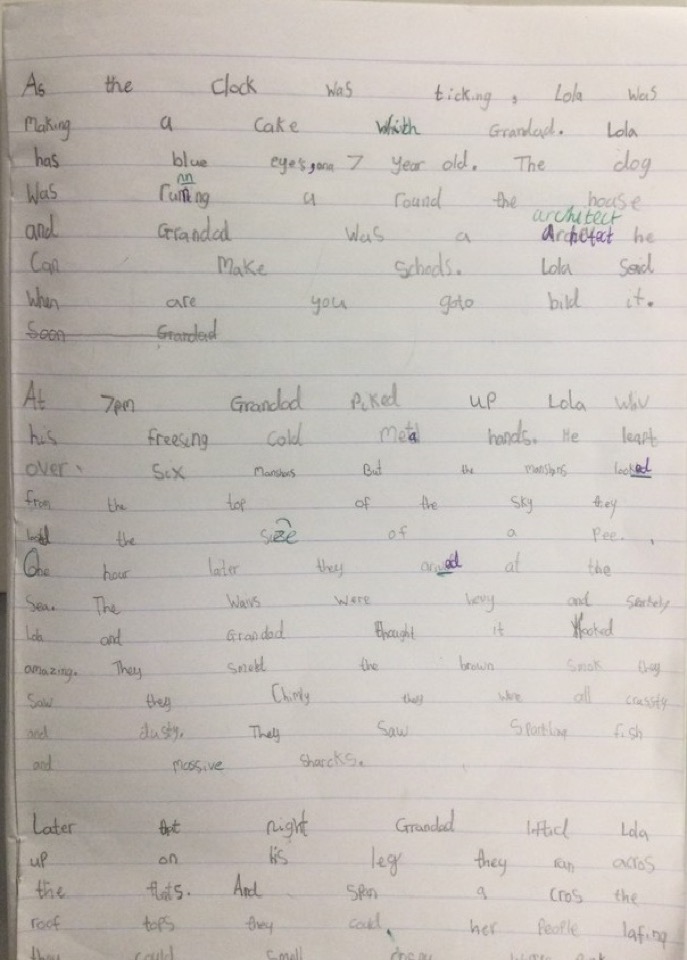 As the Clock was ticking, Lola was
Making a cake with Grandad. Lola
has blue eyes, and 7 year old. The dog
was running a round the house
architect
and Grandad was a he
Can Make scheds. Lola Said
When are you goto bild it.
Soon Grandad
At 7pm Grandad Picked up Lola
his freesing cold metal hands. He leapt
over Six Mansions But the mansions looked
from the top of the sky they
the size of a Pee.
One hour later they arrived at the
Sea. The Wavs were and
and Grandad thought it looked
amazing. They the brown Smok they
Saw they Chimly they were all crussty
and dusty. They Saw Sparkling fish
and massive sharcks.
Later night Grandad lifted Lola
up on his leg they ran acros
the flats. And span a cros the
roof tops they could her People lafing
they could Smell